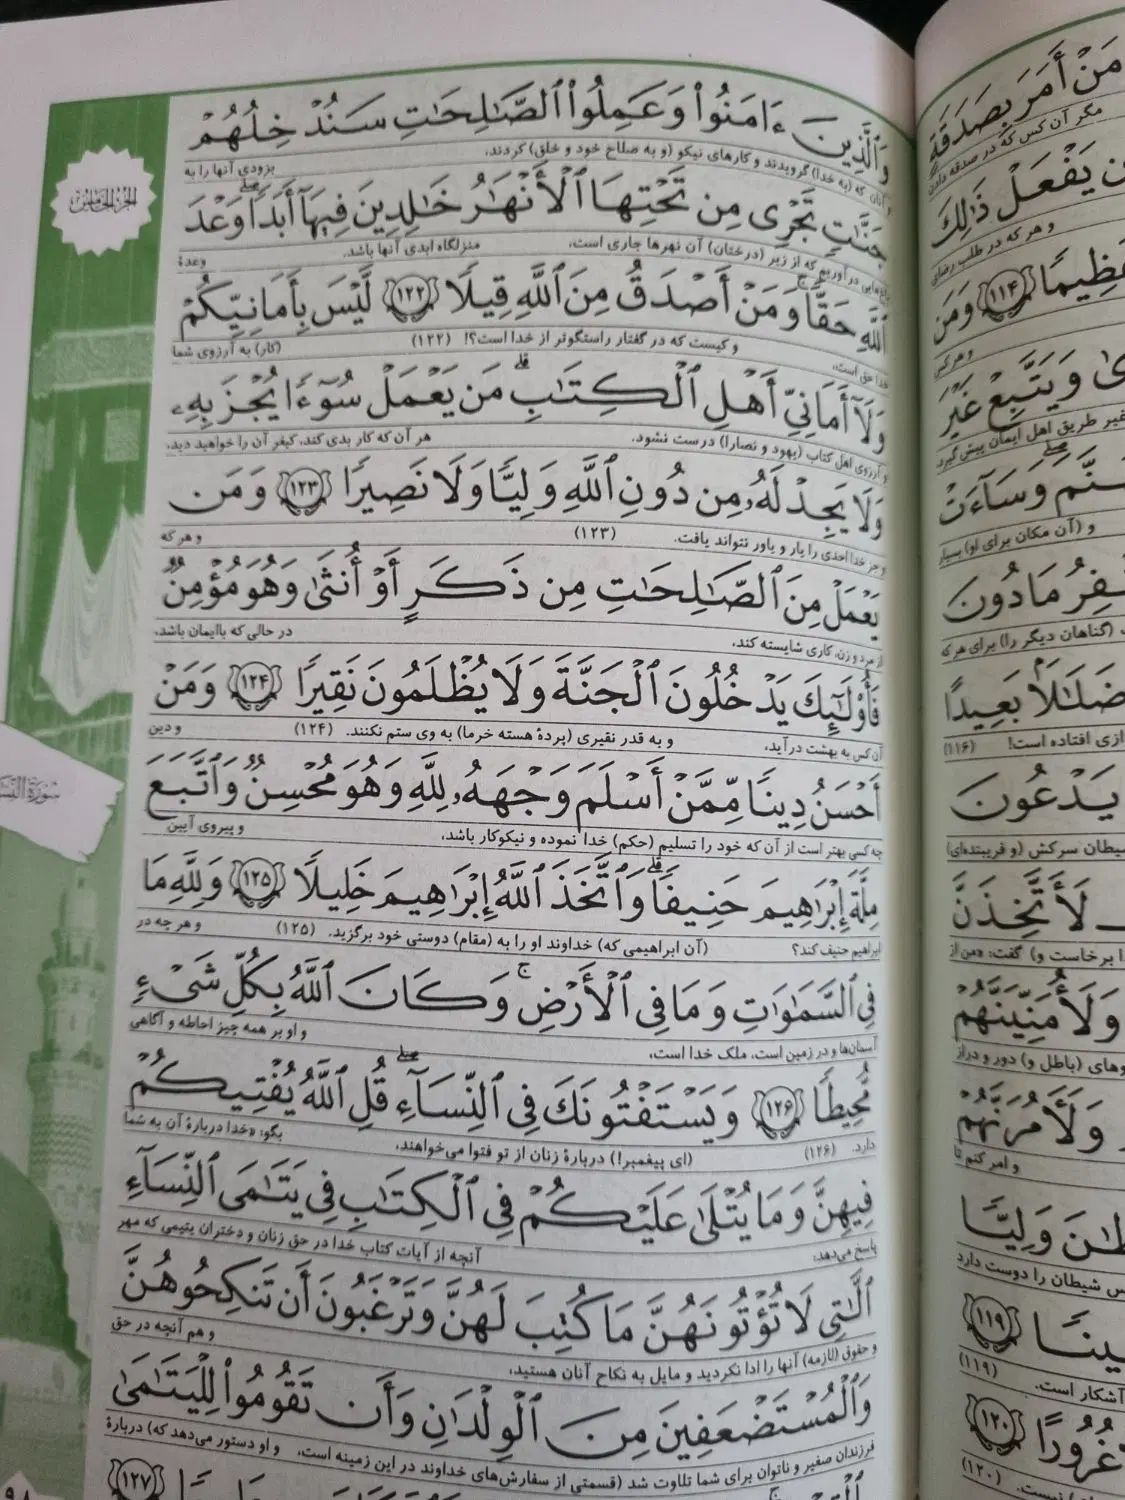 الجزء الخامس
وَٱلَّذِينَ ءَامَنُوا۟ وَعَمِلُوا۟ ٱلصَّـٰلِحَـٰتِ سَنُدْخِلُهُمْ
و آنان که (به خدا) گرویدند و کارهای نیکو (و به صلاح خود و خلق) کردند، بزودی آنها را به
جَنَّـٰتٍ تَجْرِى مِن تَحْتِهَا ٱلْأَنْهَـٰرُ خَـٰلِدِينَ فِيهَآ أَبَدًا ۖ وَعْدَ
در آوریم که از زیر (درختان) آن نهرها جاری است، منزلگاه ابدی آنها باشد. وعدهٔ
ٱللَّهِ حَقًّا ۚ وَمَنْ أَصْدَقُ مِنَ ٱللَّهِ قِيلًا ﴿١٢٢﴾ لَّيْسَ بِأَمَانِيِّكُمْ
خدا حق است، و کیست که در گفتار راستگوتر از خدا است؟! (۱۲۲) (کار) به آرزوی شما
وَلَآ أَمَانِىِّ أَهْلِ ٱلْكِتَـٰبِ ۗ مَن يَعْمَلْ سُوٓءًا يُجْزَ بِهِۦ
و آرزوی اهل کتاب (یهود و نصارا) درست نشود. هر آن که کار بدی کند، کیفر آن را خواهید دید،
وَلَا يَجِدْ لَهُۥ مِن دُونِ ٱللَّهِ وَلِيًّا وَلَا نَصِيرًا ﴿١٢٣﴾ وَمَن
و جز خدا احدی را یار و یاور نتواند یافت. (۱۲۳) و هر که
يَعْمَلْ مِنَ ٱلصَّـٰلِحَـٰتِ مِن ذَكَرٍ أَوْ أُنثَىٰ وَهُوَ مُؤْمِنٌ
از مرد و زن، کاری شایسته کند، در حالی که باایمان باشد،
فَأُو۟لَـٰٓئِكَ يَدْخُلُونَ ٱلْجَنَّةَ وَلَا يُظْلَمُونَ نَقِيرًا ﴿١٢٤﴾ وَمَنْ
آن کس به بهشت درآید، و به قدر نقیری (پردهٔ هسته خرما) به وی ستم نکنند. (۱۲۴) و دین
أَحْسَنُ دِينًا مِّمَّنْ أَسْلَمَ وَجْهَهُۥ لِلَّهِ وَهُوَ مُحْسِنٌ وَٱتَّبَعَ
چه کسی بهتر است از آن که خود را تسلیم (حکم) خدا نموده و نیکوکار باشد، و پیروی آیین
مِلَّةَ إِبْرَٰهِيمَ حَنِيفًا ۗ وَٱتَّخَذَ ٱللَّهُ إِبْرَٰهِيمَ خَلِيلًا ﴿١٢٥﴾ وَلِلَّهِ مَا
ابراهیم حنیف کند؟ (آن ابراهیمی که) خداوند او را به (مقام) دوستی خود برگزید. (۱۲۵) و هر چه در
فِى ٱلسَّمَـٰوَٰتِ وَمَا فِى ٱلْأَرْضِ ۚ وَكَانَ ٱللَّهُ بِكُلِّ شَىْءٍ
آسمان‌ها و در زمین است، ملک خدا است، و او بر همه چیز احاطه و آگاهی
مُّحِيطًا ﴿١٢٦﴾ وَيَسْتَفْتُونَكَ فِى ٱلنِّسَآءِ ۖ قُلِ ٱللَّهُ يُفْتِيكُمْ
دارد. (۱۲۶) (ای پیغمبر!) دربارهٔ زنان از تو فتوا می‌خواهند، بگو: «خدا دربارهٔ آن به شما
فِيهِنَّ وَمَا يُتْلَىٰ عَلَيْكُمْ فِى ٱلْكِتَـٰبِ فِى يَتَـٰمَى ٱلنِّسَآءِ
پاسخ می‌دهد، آنچه از آیات کتاب خدا در حق زنان و دختران یتیمی که مهر
ٱلَّـٰتِى لَا تُؤْتُونَهُنَّ مَا كُتِبَ لَهُنَّ وَتَرْغَبُونَ أَن تَنكِحُوهُنَّ
و حقوق (لازمه) آنها را ادا نکردید و مایل به نکاح آنان هستید، و هم آنچه در حق
وَٱلْمُسْتَضْعَفِينَ مِنَ ٱلْوِلْدَٰنِ وَأَن تَقُومُوا۟ لِلْيَتَـٰمَىٰ
فرزندان صغیر و ناتوان برای شما تلاوت شد (قسمتی از سفارش‌های خداوند در این زمینه است، و او دستور می‌دهد که) دربارهٔ
﴿١٢٧﴾
مَنْ أَمَرَ بِصَدَقَةٍ
مگر آن کس که در صدقه دادن
يَفْعَلْ ذَٰلِكَ
و هر که در طلب رضای
عَظِيمًا ﴿١١٤﴾ وَمَن
و هر کس
وَيَتَّبِعْ غَيْرَ
غیر طریق اهل ایمان پیش گیرد
وَسَآءَتْ
و (آن مکان برای او) بسیار
مَا دُونَ
(گناهان دیگر را) برای هر که
ضَلَـٰلًۢا بَعِيدًا
ازی افتاده است! (۱۱۶)
يَدْعُونَ
شیطان سرکش (و فریبنده‌ای)
لَأَتَّخِذَنَّ
برخاست و) گفت: «من از
وَلَأُمَنِّيَنَّهُمْ
(باطل و) دور و دراز
وَلَـَٔامُرَنَّهُمْ
و امر کنم تا
وَلِيًّا
شیطان را دوست دارد
﴿١١٩﴾
آشکار است. (۱۱۹)
غُرُورًا ﴿١٢٠﴾
نیست. (۱۲۰)